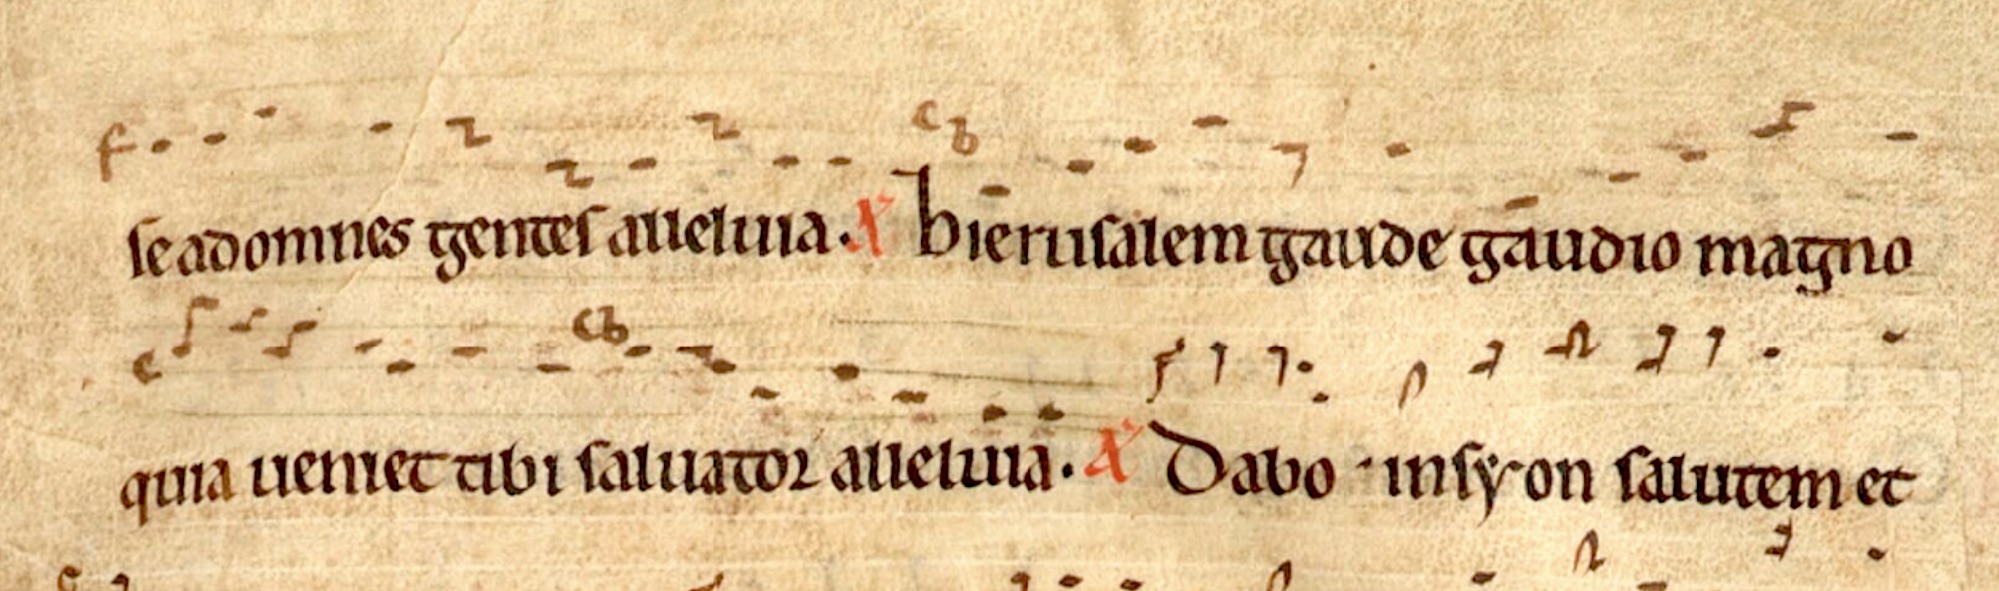 se ad omnes gentes alleluia. A hierusalem gaude gaudio magno
quia ueniet tibi saluator alleluia. A Dabo in syon salutem et